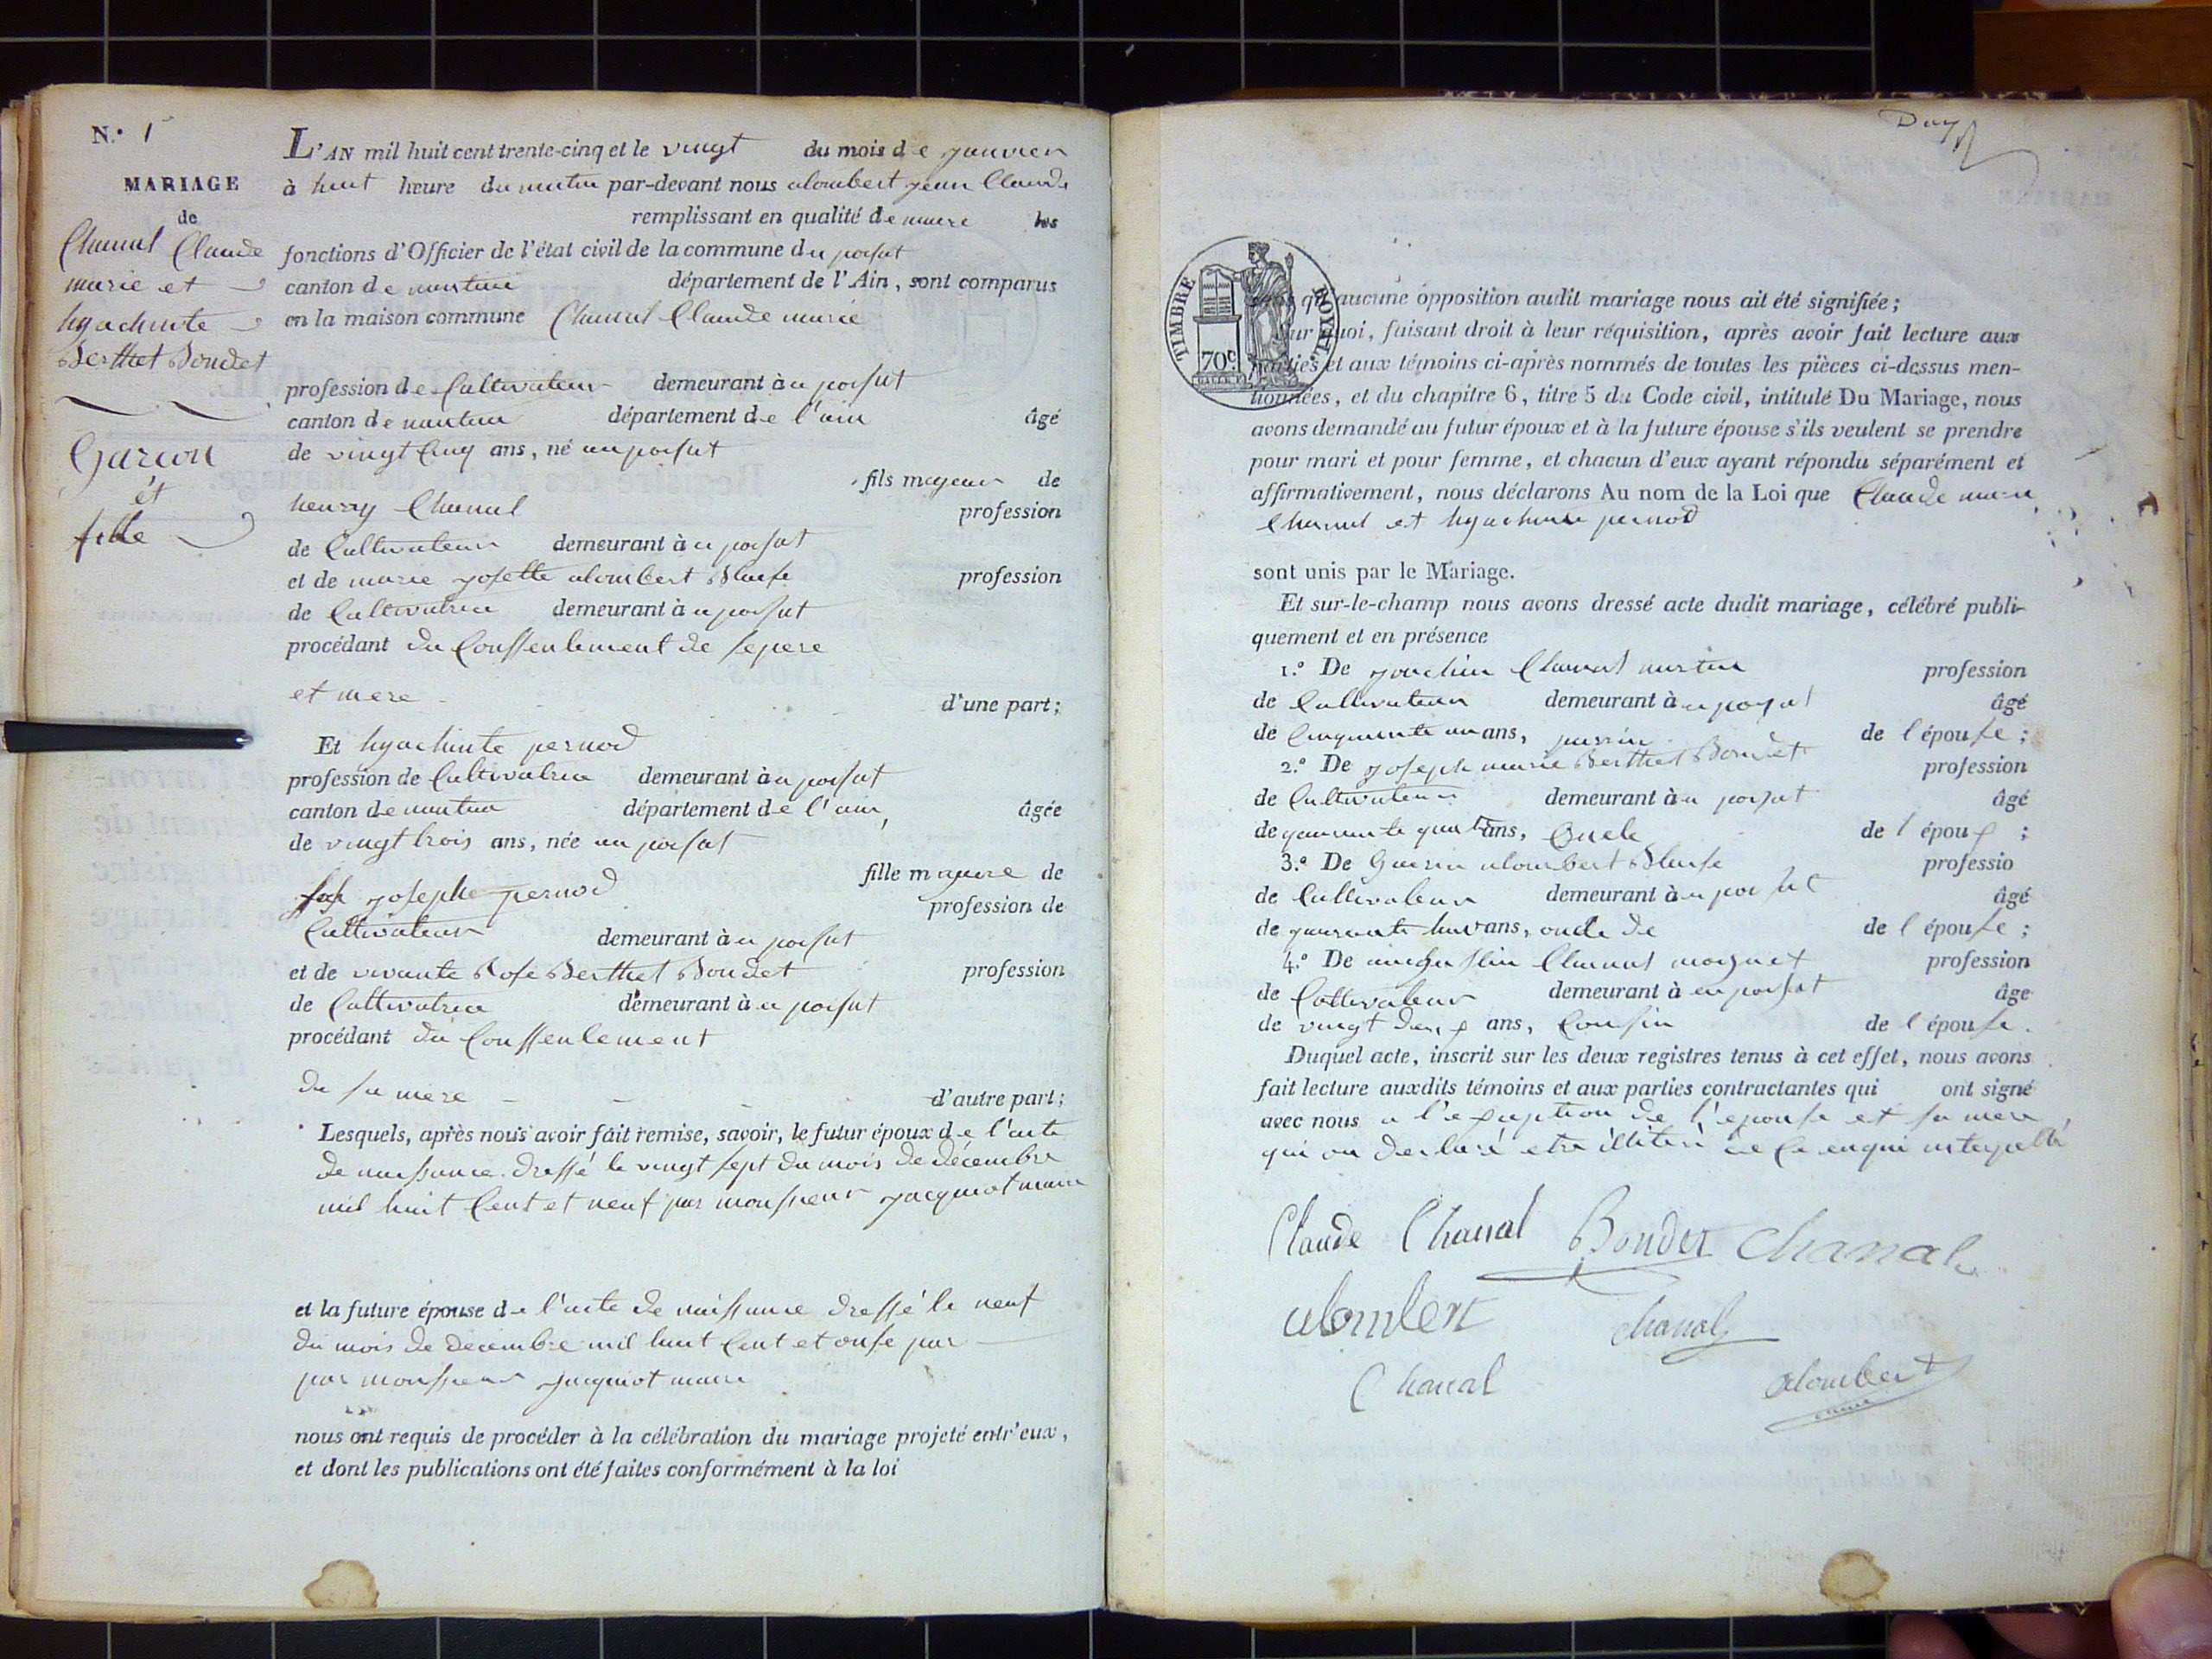 N.° 1
MARIAGE
de
Chanal Claude
marie et
hyachinte
Berthet Bondet
Garcon
et
fille
L'AN mil huit cent trente-cinq et le vingt du mois de janvier
à huit heure du matin par-devant nous alombert jean Claude
remplissant en qualité de maire les
fonctions d'Officier de l'état civil de la commune du poisat
canton de nantua département de l'Ain, sont comparus
en la maison commune Chanal Claude marie
profession de Cultivateur demeurant à u poisat
canton de nantua département de l'ain âgé
de vingt Cinq ans, né au poisat
fils majeur de
henry Chanal profession
de Cultivateur demeurant à u poisat
et de marie josette alombert Blaise profession
de Cultivatrice demeurant à u poisat
procédant du Conssentement de se pere
et mere d'une part;
Et hyachinte pernod
profession de Cultivatrice demeurant à u poisat
canton de nantua département de l'ain, âgée
de vingt trois ans, née au poisat
fille majeure de
josephe pernod profession de
Cultivateur demeurant à u poisat
et de vivante Rose Berthet Bondet profession
de Cultivatrice demeurant à u poisat
procédant du Conssentement
de sa mere d'autre part;
Lesquels, après nous avoir fait remise, savoir, le futur époux de l'acte
de naissance dressé le vingt sept du mois de décembre
mil huit Cent et neuf par monsieur jacquiot maire
et la future épouse de l'acte de naissance dressé le neuf
du mois de decembre mil huit Cent et onse par
par monsieur jacquiot maire
nous ont requis de procéder à la célébration du mariage projeté entr'eux,
et dont les publications ont été faites conformément à la loi
TIMBRE ROYAL
70c
qu'aucune opposition audit mariage nous ait été signifiée;
Sur quoi, faisant droit à leur réquisition, après avoir fait lecture aux
parties et aux témoins ci-après nommés de toutes les pièces ci-dessus men-
tionnées, et du chapitre 6, titre 5 du Code civil, intitulé Du Mariage, nous
avons demandé au futur époux et à la future épouse s'ils veulent se prendre
pour mari et pour femme, et chacun d'eux ayant répondu séparément et
affirmativement, nous déclarons Au nom de la Loi que Claude marie
Chanal et hyachinte pernod
sont unis par le Mariage.
Et sur-le-champ nous avons dressé acte dudit mariage, célébré publi-
quement et en présence
1.° De joachim Chanal martin profession
de Cultivateur demeurant à u poisat âgé
de Cinquante un ans, parrin de l'épouse;
2.° De joseph marie Berthet Bondet profession
de Cultivateur demeurant à u poisat âgé
de quarante quatre ans, oncle de l'épouse;
3.° De alombert Blaise professio
de Cultivateur demeurant à u poisat âgé
de quarante huit ans, oncle de de l'épouse;
4.° De Chanal profession
de Cultivateur demeurant à eu poisat âge
de vingt ans, Cousin de l'épouse.
Duquel acte, inscrit sur les deux registres tenus à cet effet, nous avons
fait lecture auxdits témoins et aux parties contractantes qui ont signé
avec nous a l'exception de l'epouse et sa mere
qui on declaré etre illiteré de ce enqui
Claude Chanal Bondet Chanal
alombert chanal
Chanal alombert
maire